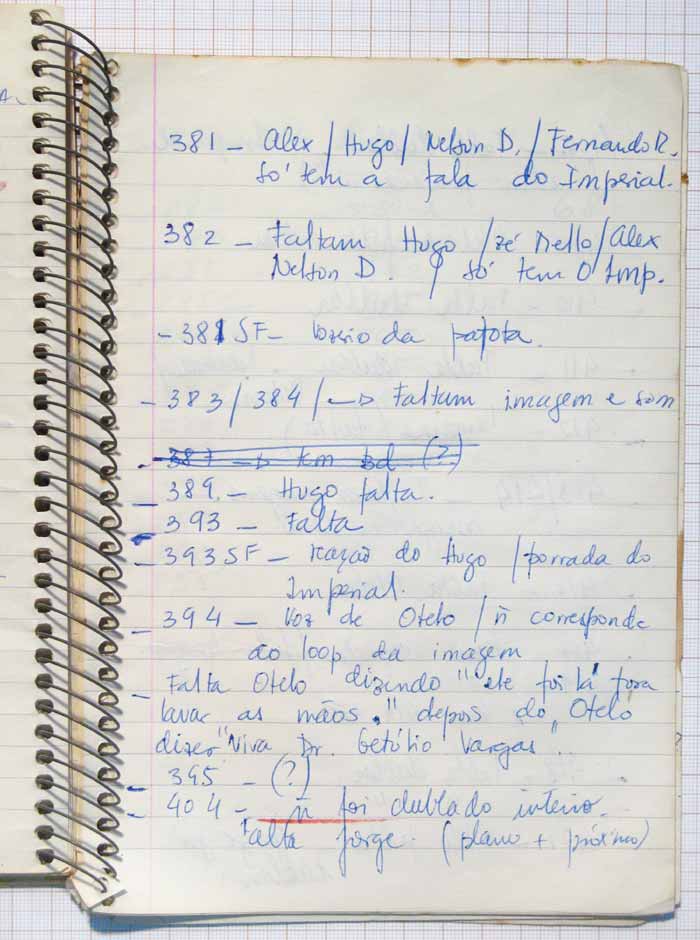 381 - Alex / Hugo / Nelson D. / Fernando R.
só tem a fala do Imperial.
382 - Faltam Hugo / Zé Mello / Alex
Nelson D. / só tem O Imp.
- 381 SF - vozerio da patota.
- 383 / 384 / → Faltam imagem e som
- 387 → tem bd. (?)
- 389. - Hugo falta.
- 393 - Falta
- 393 SF - reação do Hugo / porrada do
Imperial.
- 394 - Voz de Otelo / ñ corresponde
ao loop da imagem
- Falta Otelo dizendo "ele foi lá fora
lavar as mãos." depois do Otelo
dizer "Viva Dr. Getúlio Vargas".
- 395 - (?)
- 404 - ñ foi dublado inteiro.
Falta Jorge. (plano + próximo)